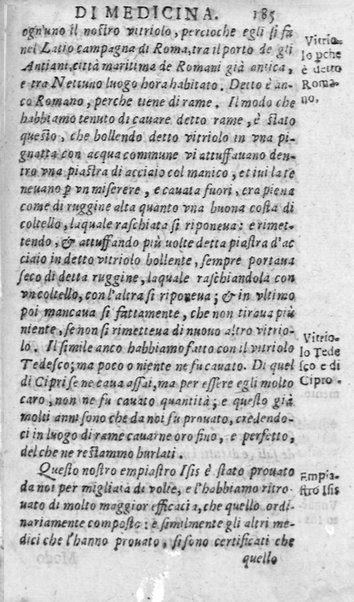 DI MEDICINA. 185
ogn'uno il nostro vitriolo, percioche egli si fa
nel Latio campagna di Roma, tra il porto de gli
Antiani, città maritima de Romani già antica,
e tra Nettuno luogo hora habitato. Detto è an-
co Romano, perche tiene di rame. Il modo che
habbiamo tenuto di cauare detto rame, è stato
questo, che bollendo detto vitriolo in vna pi-
gnatta con acqua commune vi attuffauano den-
tro vna piastra di acciaio col manico, et iui la te
neuano p vn miserere, e cauata fuori, era piena
come di ruggine alta quanto vna buona costa di
coltello, laquale raschiata si riponeua; e rimet-
tendo, & attuffando più uolte detta piastra d'ac
ciaio in detto vitriolo bollente, sempre portaua
seco di detta ruggine, laquale raschiandola con
vn coltello, con l'altra si riponeua; & in vltimo
poi mancaua sì fattamente, che non tiraua più
niente, se non si rimetteua di nuouo altro vitrio-
lo. Il simile anco habbiamo fatto con il vitriolo
Tedesco; ma poco o niente ne fu cauato. Di quel
di Cipri se ne caua assai, ma per essere egli molto
caro, non ne fu cauato quantità; e questo già
molti anni sono che da noi fu prouato, credendo-
ci in luogo di rame cauarne oro fino, e perfetto,
del che ne restammo burlati.
Questo nostro empiastro Isis è stato prouato
da noi per migliaia di volte, e l'habbiamo ritro-
uato di molto maggior efficacia, che quello ordi-
nariamente composto: e similmente gli altri me-
dici che l'hanno prouato, si sono certificati che
quello
Vitrio-
lo pche
è detto
Roma-
no,
Vitrio-
lo Tede
sco e di
Cipro.
Empia-
stro Isis